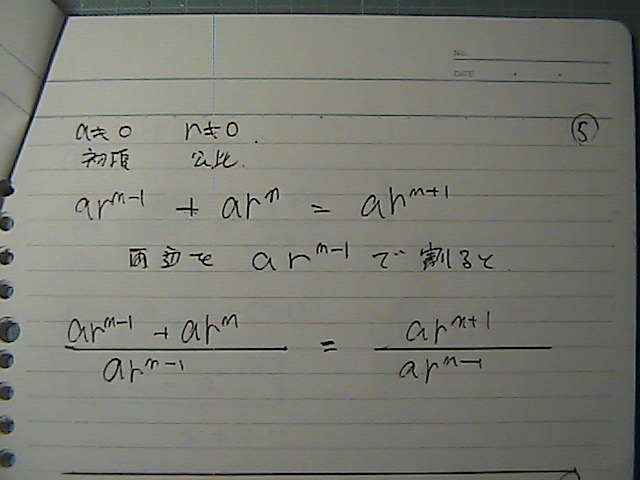 No.
DATE
a≠0 r≠0. ⑤
初項 公比.
ar^{n-1} + ar^n = ar^{n+1}
両辺を ar^{n-1} で割ると
\frac{ar^{n-1} + ar^n}{ar^{n-1}} = \frac{ar^{n+1}}{ar^{n-1}}